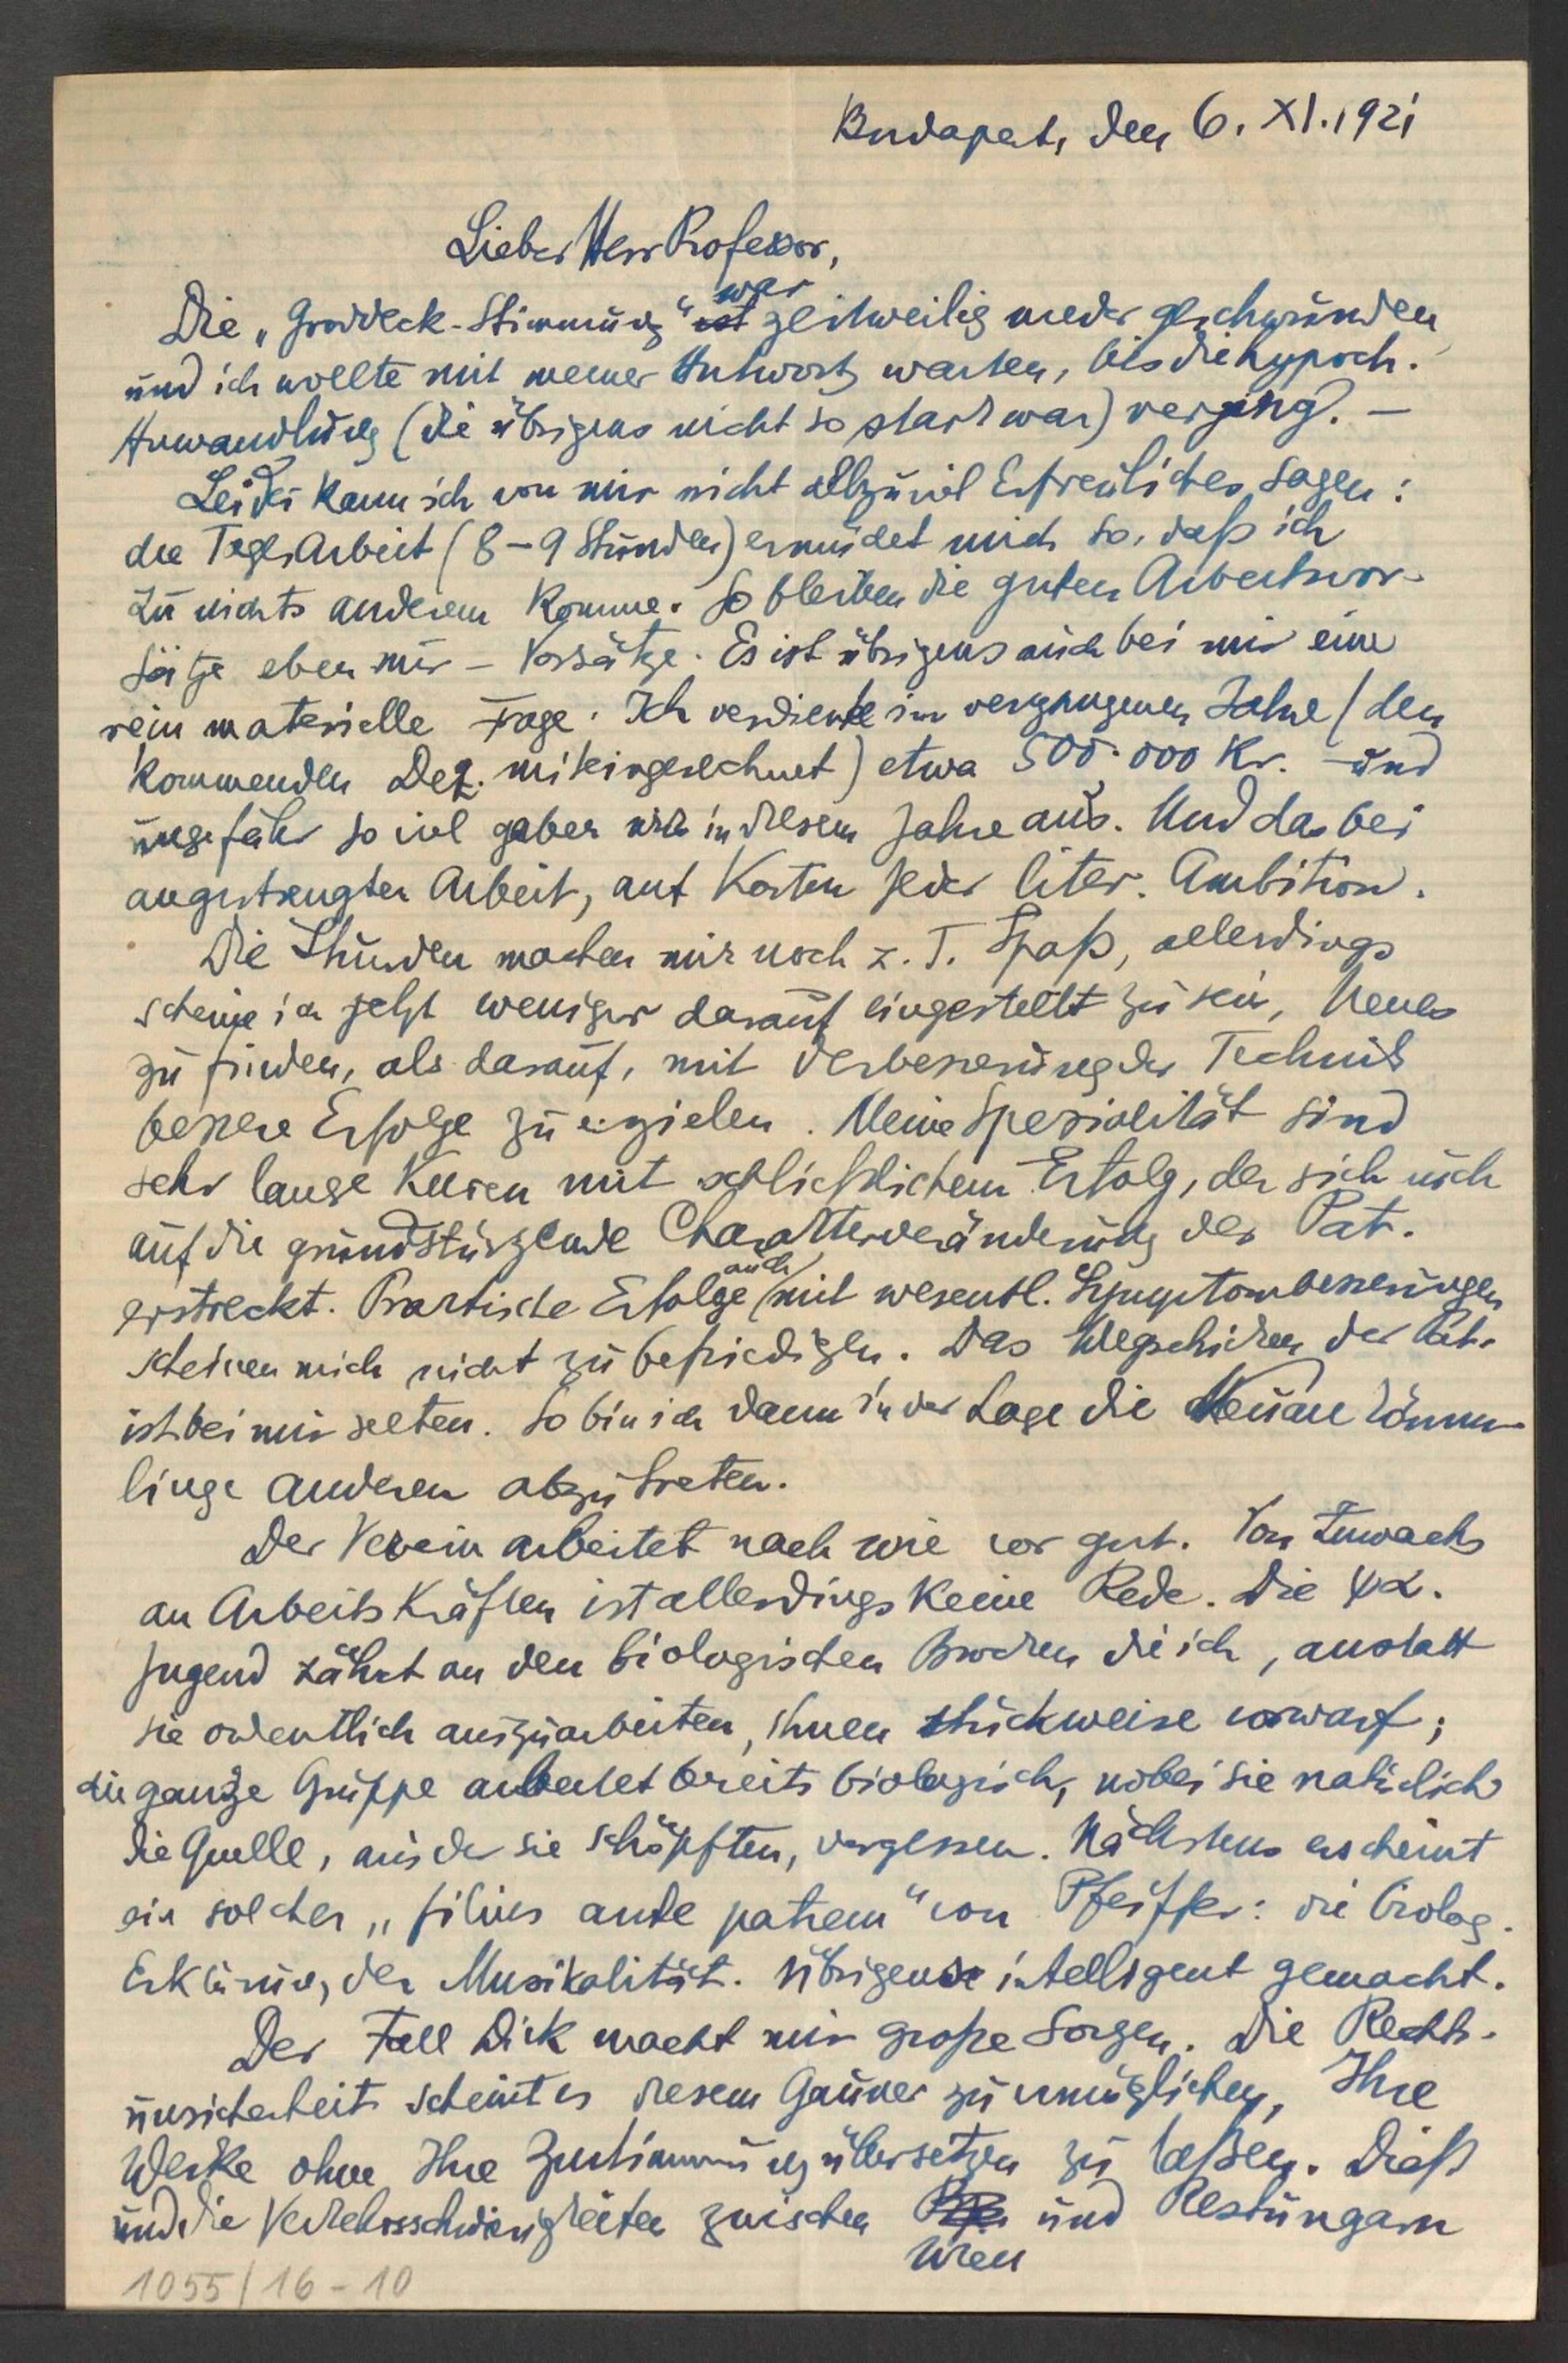 Budapest, den 6. XI. 1921
Lieber Herr Professor,
Die „Groddeck-Stimmung“ ist war zeitweilig wieder geschwunden
und ich wollte mit meiner Antwort warten, bis die hypoch.
Anwandlung (die übrigens nicht so stark war) verging. —
Leider kann ich von mir nicht allzuviel Erfreuliches sagen:
die Tagesarbeit (8–9 Stunden) ermüdet mich so, daß ich
zu nichts anderem komme. So bleiben die guten Arbeitsvor-
sätze eben nur – Vorsätze. Es ist übrigens auch bei mir eine
rein materielle Frage. Ich verdiente im vergangenen Jahre (den
kommenden Dez. miteingerechnet) etwa 500.000 Kr. – und
ungefähr so viel gaben wir in diesem Jahre aus. Und das bei
angestrengter Arbeit, auf Kosten jeder liter. Ambition.
Die Stunden machen mir noch z. T. Spaß, allerdings
scheine ich jetzt weniger darauf eingestellt zu sein, Neues
zu finden, als darauf, mit Verbesserung der Technik
bessere Erfolge zu erzielen. Meine Spezialität sind
sehr lange Kuren mit schließlichem Erfolg, der sich auch
auf die grundstürzende Charakterveränderung des Pat.
erstreckt. Praktische Erfolge auch mit wesentl. Symptombesserungen
scheinen mich nicht zu befriedigen. Das Wegschicken der Pat.
ist bei mir selten. So bin ich dann in der Lage die Neuankömm-
linge anderen abzutreten.
Der Verein arbeitet nach wie vor gut. Von Zuwachs
an Arbeitskräften ist allerdings keine Rede. Die ψα.
Jugend zährt an den biologischen Brocken die ich, anstatt
sie ordentlich auszuarbeiten, ihnen stückweise vorwarf;
die ganze Gruppe arbeitet bereits biologisch, wobei sie natürlich
die Quelle, aus der sie schöpften, vergessen. Nächstens erscheint
ein solcher „filius ante patrem“ von Pfeiffer: die biolog.
Erklärung der Musikalität. Übrigens intelligent gemacht.
Der Fall Dick macht mir große Sorgen. Die Rechts-
unsicherheit scheint es diesem Gauner zu ermöglichen, Ihre
Werke ohne Ihre Zustimmung übersetzen zu laßen. Dieß
und die Verkehrsschwierigkeiten zwischen Wien und Restungarn
1055/16-10